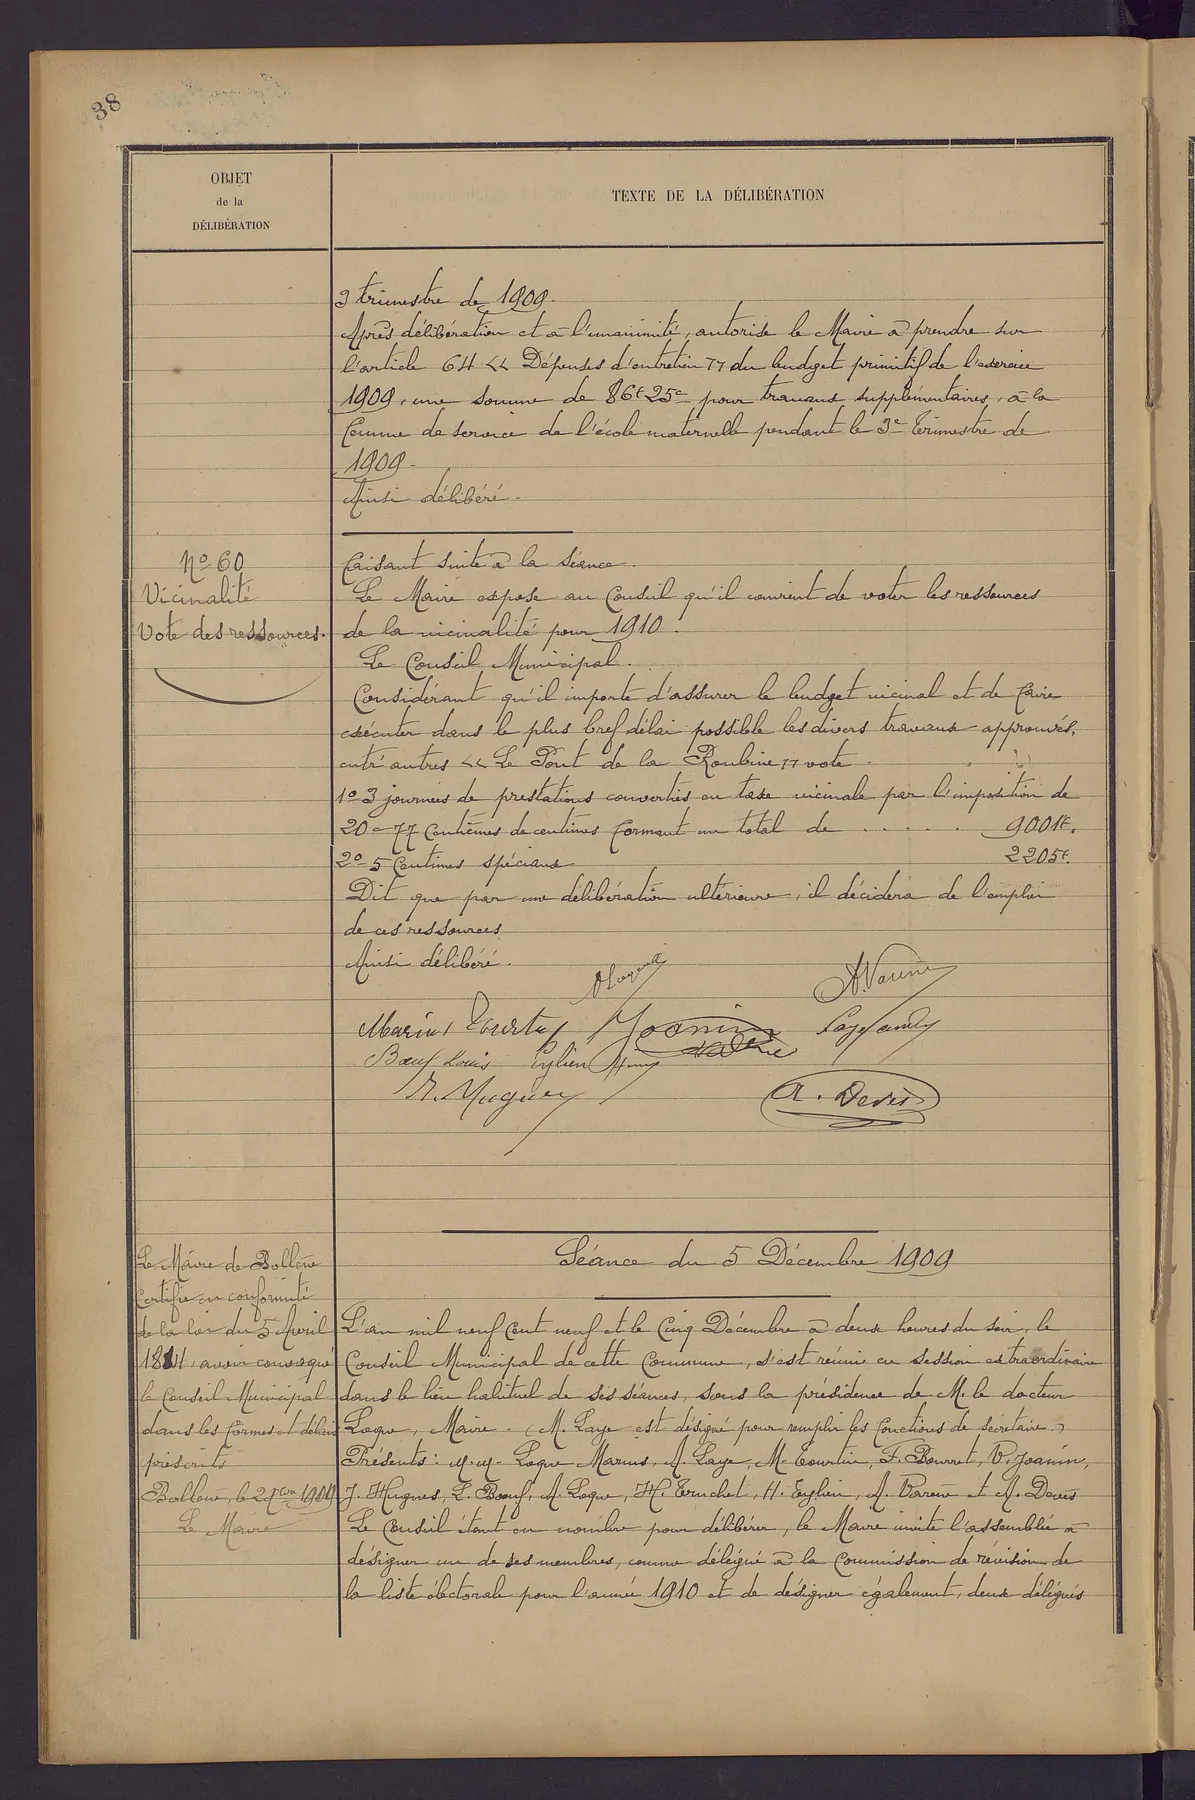 38
OBJET
de la
DÉLIBÉRATION
TEXTE DE LA DÉLIBÉRATION
3 trimestre de 1909.
Après délibération et à l'unanimité, autorise le Maire à prendre sur
l'article 64 << Dépenses d'entretien >> du budget primitif de l'exercice
1909, une somme de 86f 25c pour travaux supplémentaires, à la
femme de service de l'école maternelle pendant le 3e Trimestre de
1909.
Ainsi délibéré.
No 60
Vicinalité
Vote des ressources.
Faisant suite à la séance.
Le Maire expose au Conseil qu'il convient de voter les ressources
de la vicinalité pour 1910.
Le Conseil Municipal.
Considérant qu'il importe d'assurer le budget vicinal et de faire
exécuter dans le plus bref délai possible les divers travaux approuvés,
entr'autres << Le Pont de la Roubine >> vote.
1o 3 journées de prestations converties en taxe vicinale par l'imposition de
20 - 77 Centièmes de centimes formant un total de . . . . . 9001f.
2o 5 Centimes spéciaux 2205f.
Dit que par une délibération ultérieure, il décidera de l'emploi
de ces ressources
Ainsi délibéré.
A. Varenne
Marius Tourtin Joanin Laye
Bœuf Louis Eylien
Hugues
A. Devès
Séance du 5 Décembre 1909
Le Maire de Bollène
Certifie en conformité
de la loi du 5 Avril
1884, avoir convoqué
le Conseil Municipal
dans les formes et délais
prescrits
Bollène, le 29 1909
Le Maire
L'an mil neuf cent neuf et le Cinq Décembre à deux heures du soir, le
Conseil Municipal de cette Commune, s'est réuni en session extraordinaire
dans le lieu habituel de ses séances, sous la présidence de M. le docteur
Loque, Maire. (M. Laye est désigné pour remplir les fonctions de secrétaire.)
Présents: M.M. Loque Marius, A. Laye, M. Tourtin, F. Bourret, V. Joanin,
J. Hugues, L. Bœuf, A. Loque, H. Truchet, H. Eylien, A. Varenne et A. Devès
Le Conseil étant en nombre pour délibérer, le Maire invite l'assemblée à
désigner un de ses membres, comme délégué à la Commission de révision de
la liste électorale pour l'année 1910 et de désigner également, deux délégués